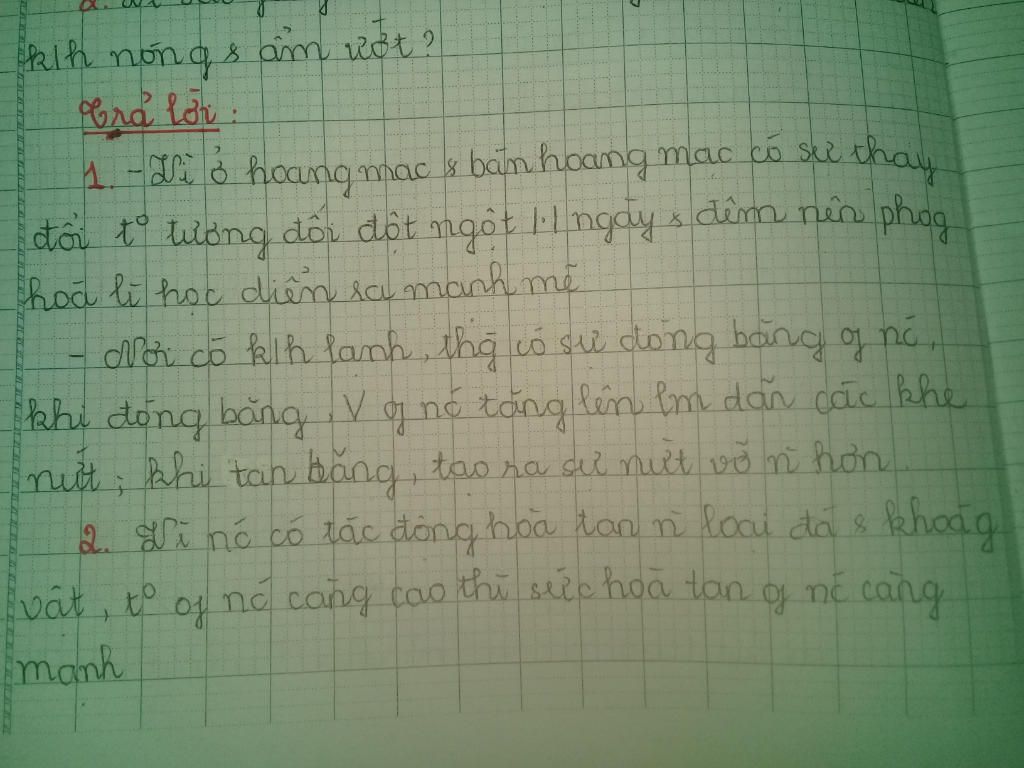 klh nóng & ẩm ướt?
Trả lời:
1. - Vì ở hoang mạc & bán hoang mạc có sự thay
đổi t° tương đối đột ngột 1.1 ngày & đêm nên phog
hoá lí học diễn ra mạnh mẽ
- Nơi có klh lạnh, thg có sự đóng băng of nc,
khi đóng băng, V of nc tăng lên lm dãn các khe
nứt; khi tan băng, tạo ra sự nứt vỡ n hơn.
2. Vì nc có tác động hòa tan n loại đá & khoág
vật, t° of nc càng cao thì sức hoà tan of nc càng
mạnh